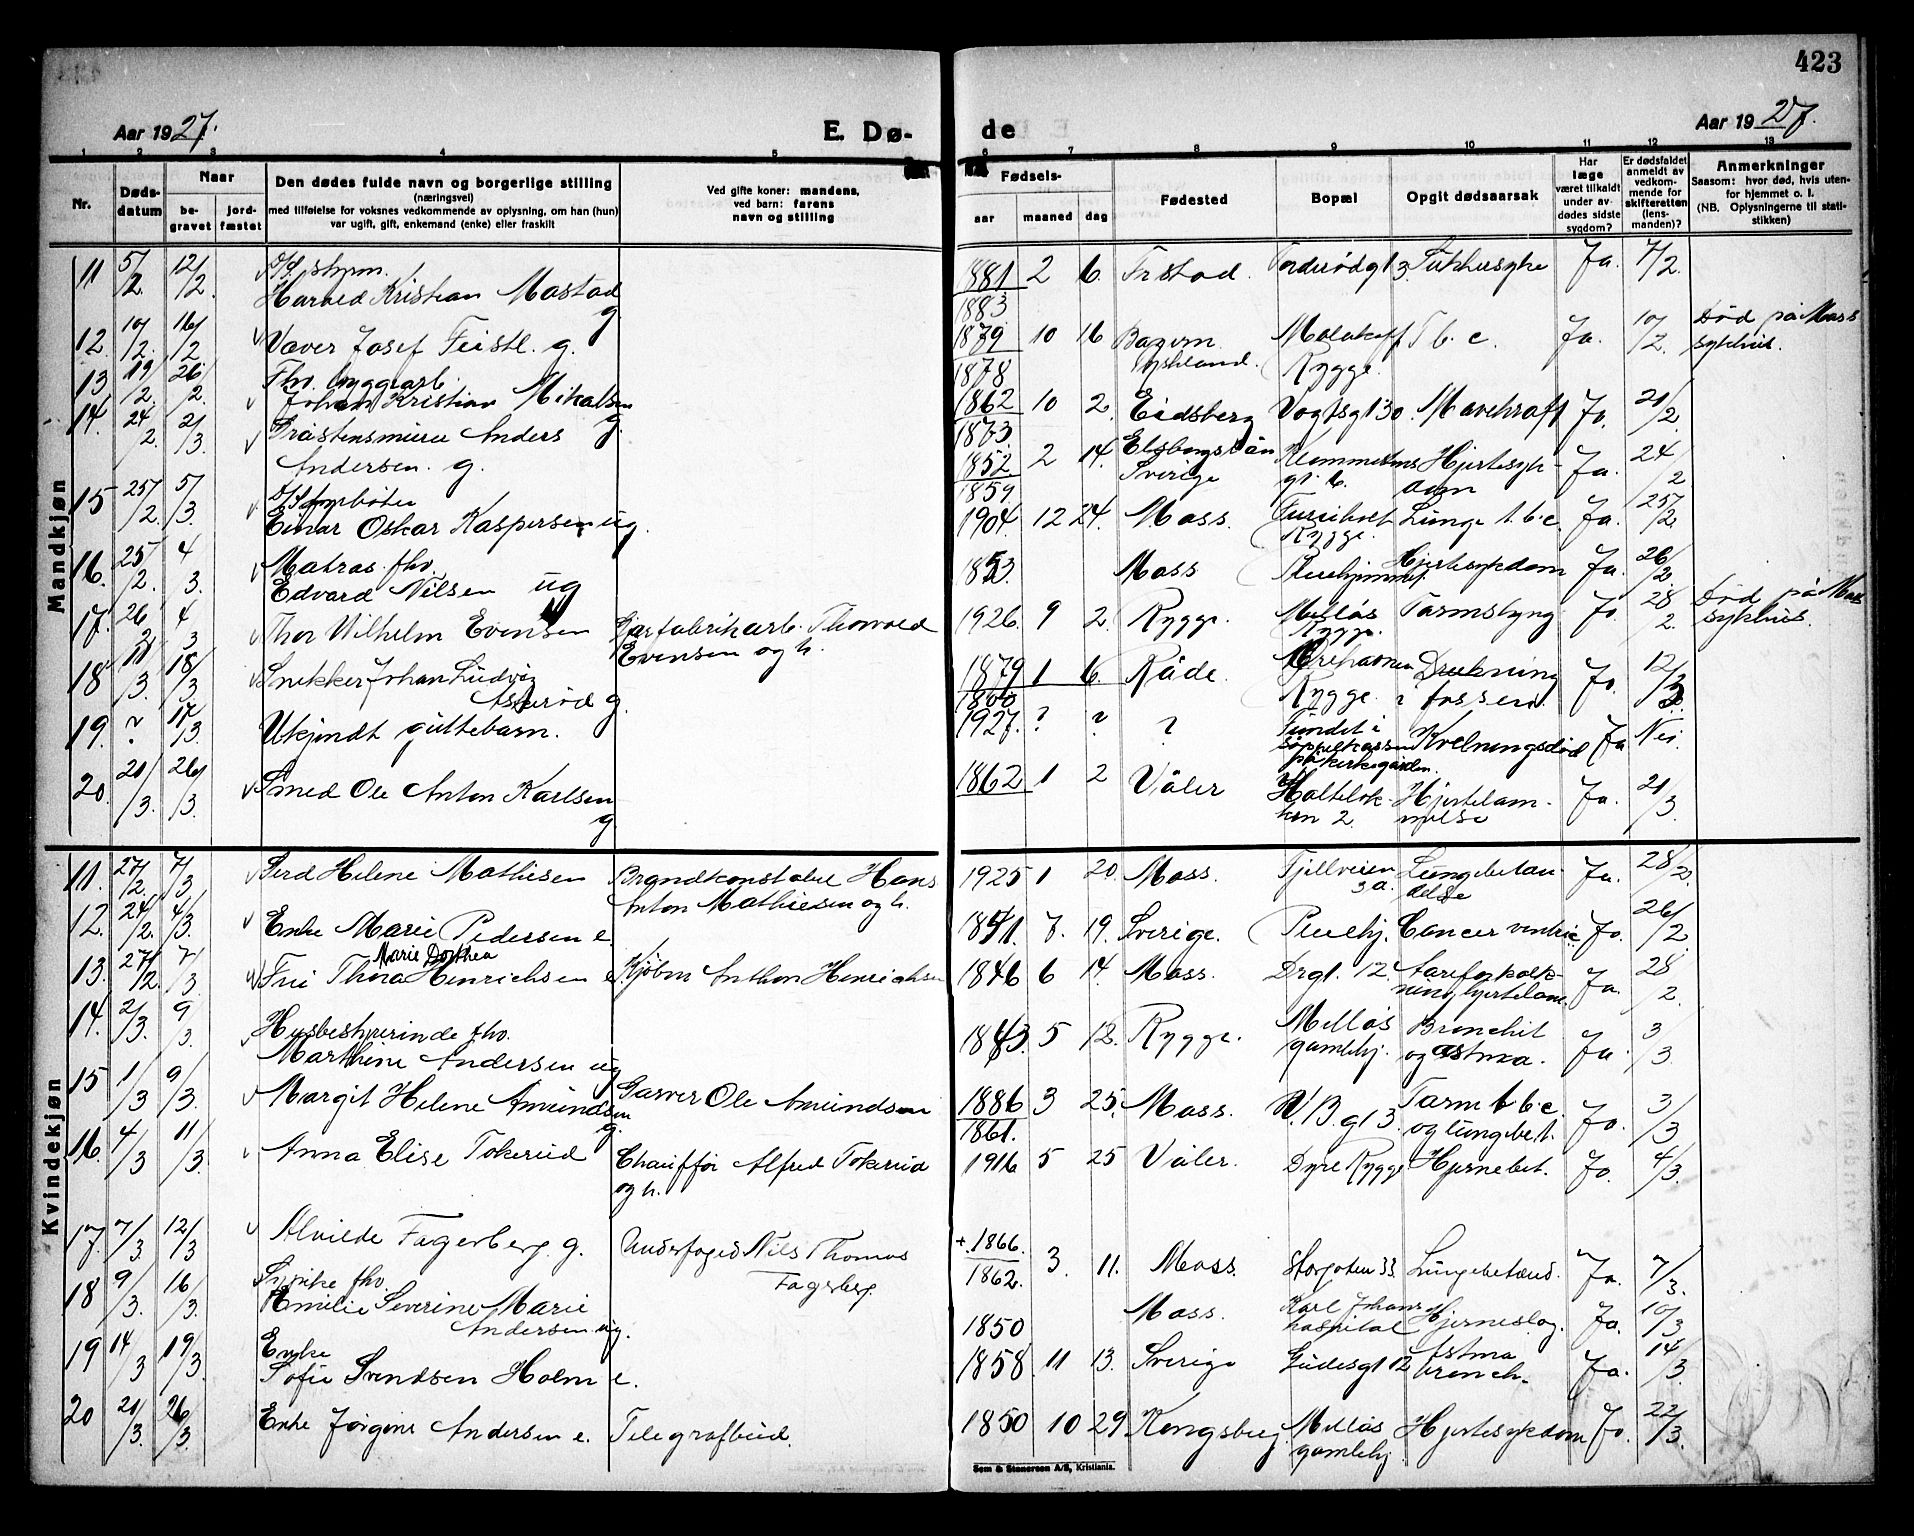 423
Aar 1927.
E. Dø-
de
Aar 1927.
1 2 3 4 5 6 7 8 9 10 11 12 13
Nr.
Døds-
datum
Naar
be-
gravet
jord-
fæstet
Den dødes fulde navn og borgerlige stilling
(næringsvei)
med tilføielse for voksnes vedkommende av oplysning, om han (hun)
var ugift, gift, enkemand (enke) eller fraskilt
Ved gifte koner: mandens,
ved barn: farens
navn og stilling
Fødsels-
aar maaned dag
Fødested
Bopæl
Opgit dødsaarsak
Har
læge
været tilkaldt
under av-
dødes sidste
sygdom?
Er dødsfaldet
anmeldt av
vedkom-
mende for
skifteretten
(lens-
manden)?
Anmerkninger
Saasom: hvor død, hvis uten-
for hjemmet o. l.
(NB. Oplysningerne til stati-
stikken)
Mandkjøn
11 5/2 12/2 Harald Kristian Mastad g 1881 1883 2 6. Frstad. Sukkersyke Ja. 7/2.
12. 10/2. 16/2 Vaver Josef Feistl. g. 1879 1878 10 16 Bayern Tyskland. Malakoff Rygge. T b. c. Ja. 10/2. Død på Moss sykehus.
13 19/2. 26/2. Fhv. byggearb. Johan Kristian Mikalsen g. 1862 1873. 10 2. Eidsberg Vogtsgt 30. Mavekraft Ja. 21/2.
14. 24/2. 2/3. Anders Andersen. g. 1852 1859. 2 14. Sverige Hjertesyk-dom Ja. 24/2
15 25/2. 5/3. Einar Oskar Kaspersen ug. 1904. 12 24. Moss. Rygge. Lunge t.b.c. Ja. 25/2
16. 25/2. 4/3. Matros fhv. Edvard Nilsen ug 1853. Moss Pleiehjemmet. Hjertesykdom Ja. 26/2
17. 26/2 4/3 Thor Wilhelm Evensen Thorvald Evensen og h. 1926. 9 2. Rygge. Melløs Rygge. Tarmslyng Ja. 28/2. Død på Moss sykehus.
18 11/3. 18/3 Snekker Johan Ludvig Asterød g. 1879 1880 1 6. Råde. Rygge. Drukning i fossen. Ja. 12/3
19. ? 17/3. Ukjendt guttebarn. 1927. ? ? ? Fundet i søppelkassen på kirkegården. Kvelningsdød Ja Nei.
20. 21/3. 26/3 Smed Ole Anton Karlsen g 1862 1 2 Våler Hjertelam-melse Ja. 21/3.
Kvindekjøn
11. 27/2. 7/3 Gerd Helene Mathisen Brandkonstabel Hans Anton Mathisen og h. 1925 1 20. Moss. Fjellveien 3a. Lungebetændelse Ja. 28/2.
12. 24/2. 4/3. Enke Marie Pedersen e. 1841. 7. 19. Sverige. Pleiehj. Cancer ventric. Ja. 26/2
13. 27/2. 7/3 Fru Thora Marie Dorthea Henrichsen e. Kjøbm. Anthon Henrichsen 1846 6 14. Moss. Drgt. 12. Aareforkalkning hjertelam. Ja. 28/2.
14. 2/3. 9/3. Husbestyrerinde fhv. Marthine Andersen ug 1843. 5 12. Rygge. Melløs gamlehj. Bronchit og astma. Ja. 3/3.
15 1/3 9/3. Margit Helene Amundsen g. Garver Ole Amundsen 1886 1861. 3 25. Moss. V.B.gt 3. Tarm t.b.c. og lungebet. Ja. 3/3
16. 4/3 11/3. Anna Elise Tokerud Chauffør Alfred Tokerud og h. 1916 5 25 Våler. Dyre Rygge Hjernebet. Ja. 4/3.
17. 7/3 12/3 Alvilde Fagerberg. g. Underfoged Nils Thomas Fagerberg. +. 1866. 1862. 3. 11. Moss. Storgaten 33. Lungebetænd. Ja. 7/3.
18 9/3. 16/3. fhv. Emilie Severine Marie Andersen ug. 1850 Moss. Karl Johans hospital Hjerneslag. Ja. 10/3
19 14/3 19/3. Enke Sofie Svendsen Holm e. 1858. 11 13. Sverige Gudesgt 12 Astma bronch. Ja. 14/3.
20 21/3. 26/3 Enke Jørgine Andersen e. Telegrafbud. 1850 10 29 Kongsberg. Melløs gamlehj. Hjertesykdom Ja. 22/3.
Sem & Stenersen A/S, Kristiania.